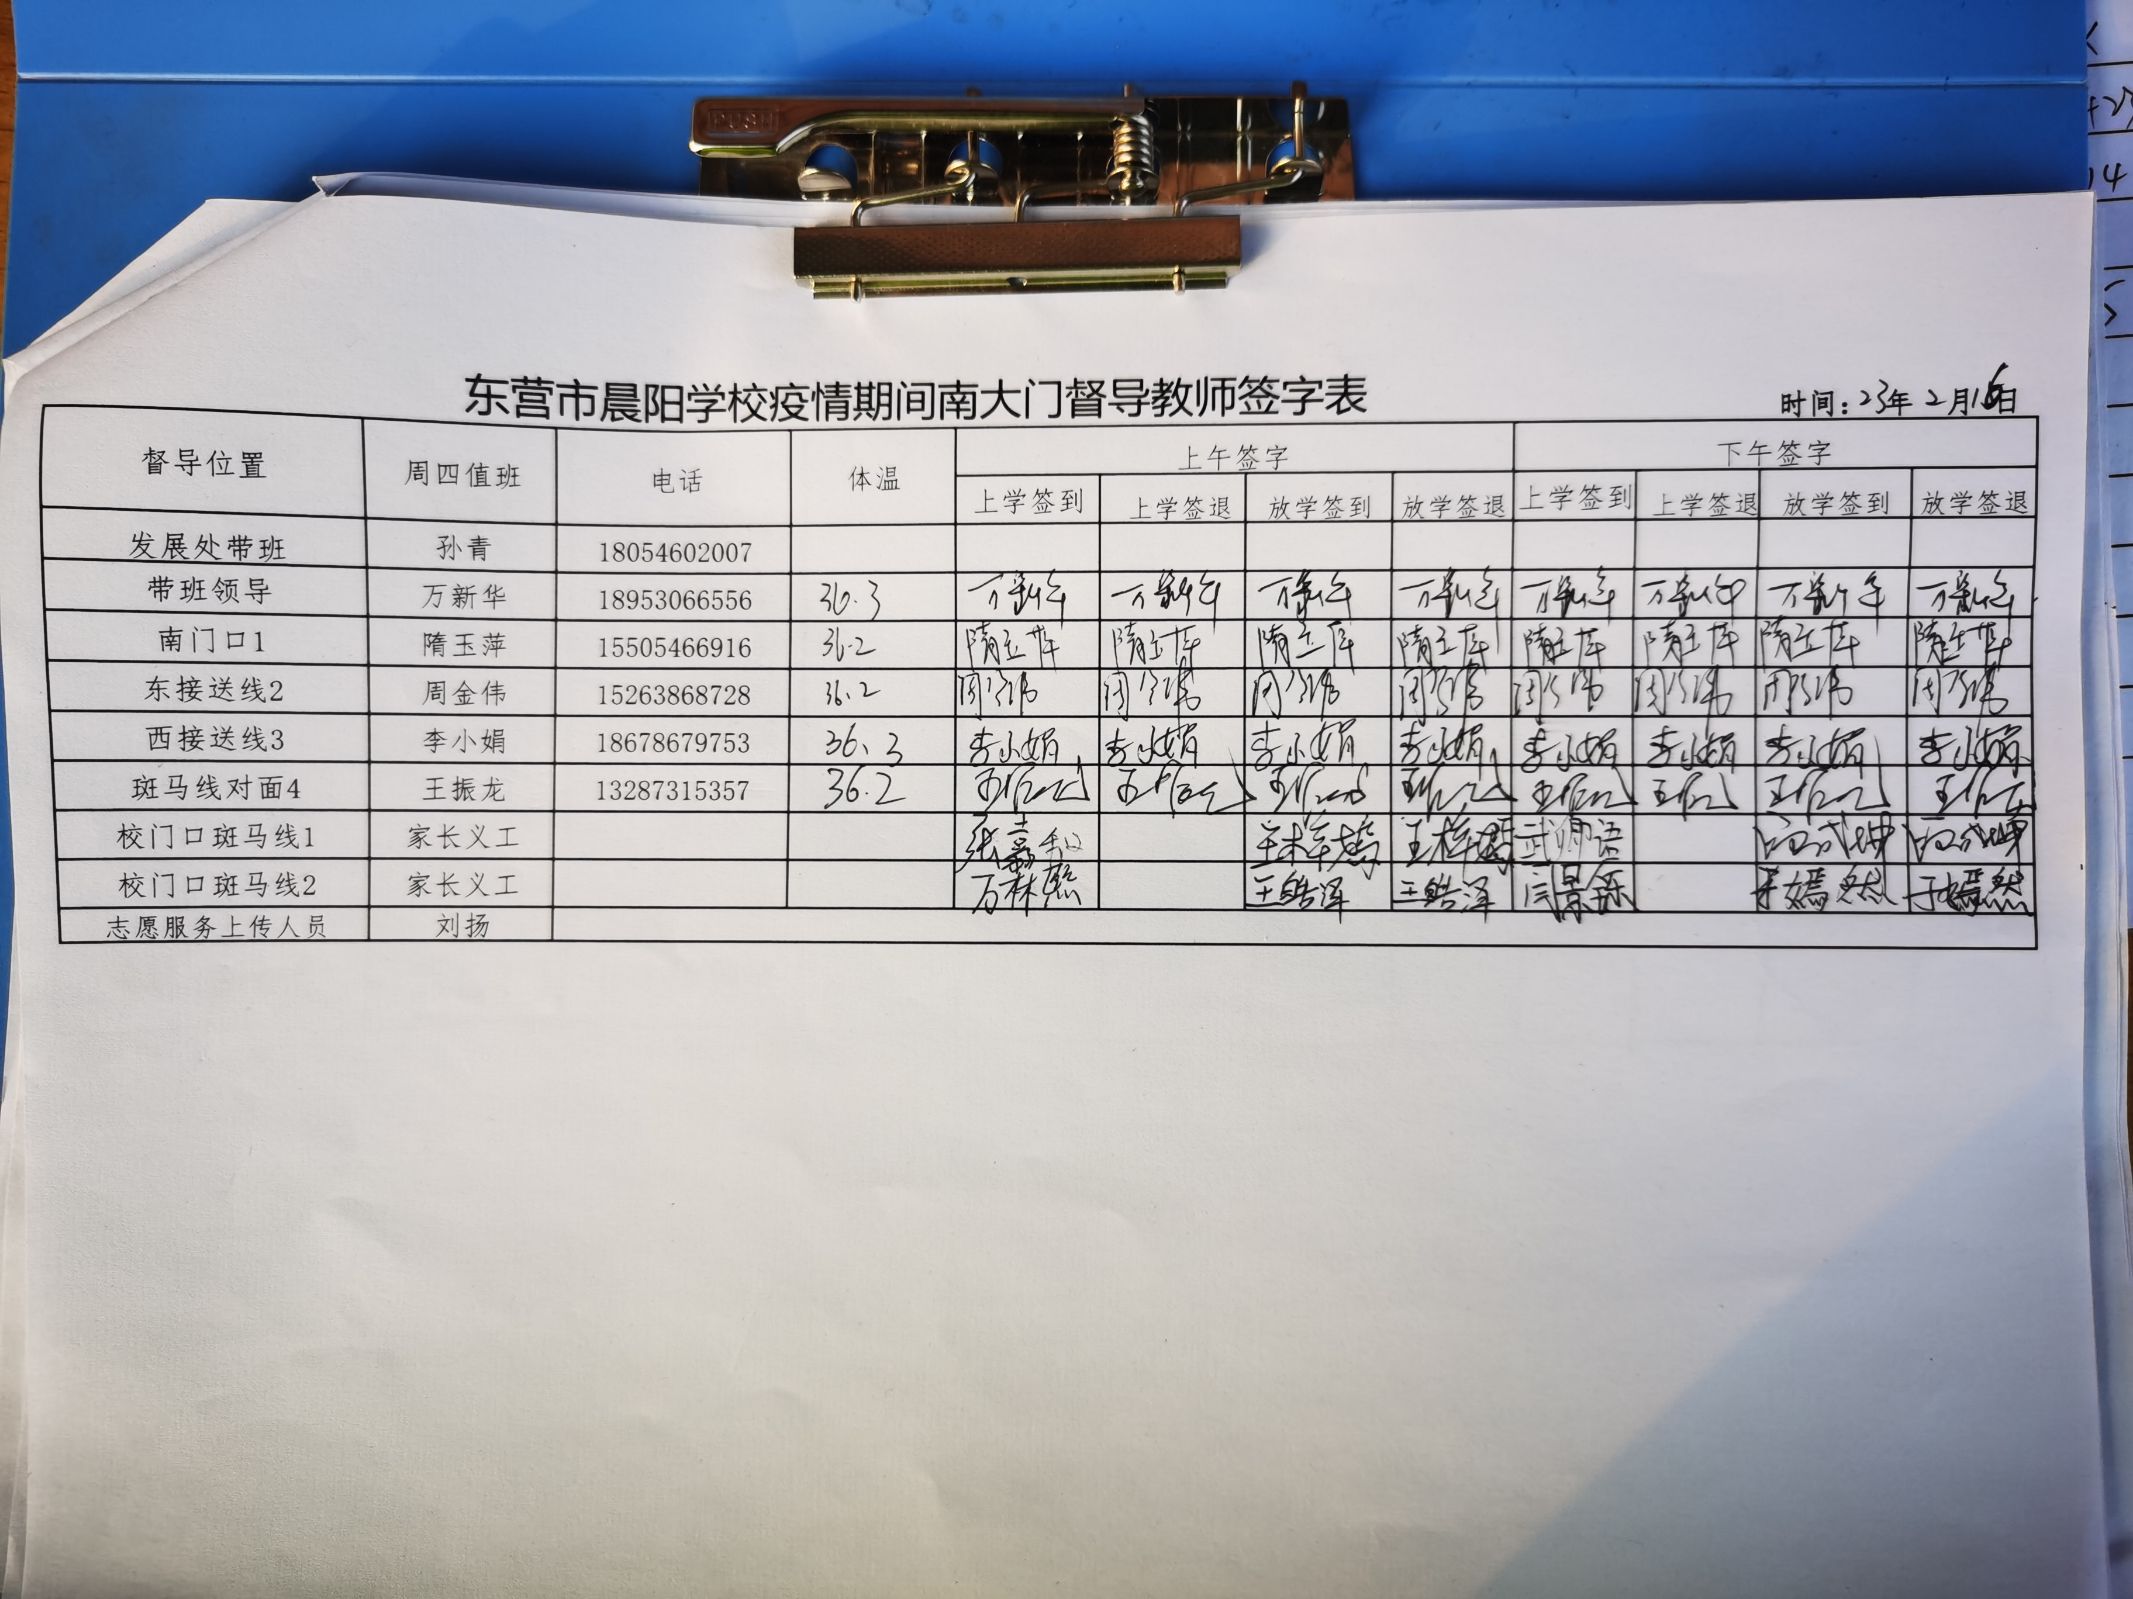 PUSH
东营市晨阳学校疫情期间南大门督导教师签字表
时间：23年2月16日
督导位置 周四值班 电话 体温 上午签字 下午签字
上学签到 上学签退 放学签到 放学签退 上学签到 上学签退 放学签到 放学签退
发展处带班 孙青 18054602007
带班领导 万新华 18953066556 36.3 万新华 万新华 万新华 万新华 万新华 万新华 万新华 万新华
南门口1 隋玉萍 15505466916 36.2 隋玉萍 隋玉萍 隋玉萍 隋玉萍 隋玉萍 隋玉萍 隋玉萍 隋玉萍
东接送线2 周金伟 15263868728 36.2 周金伟 周金伟 周金伟 周金伟 周金伟 周金伟 周金伟 周金伟
西接送线3 李小娟 18678679753 36.3 李小娟 李小娟 李小娟 李小娟 李小娟 李小娟 李小娟 李小娟
斑马线对面4 王振龙 13287315357 36.2 王振龙 王振龙 王振龙 王振龙 王振龙 王振龙 王振龙 王振龙
校门口斑马线1 家长义工 张嘉和
校门口斑马线2 家长义工 万林熙 王皓泽 王皓泽 于嫣然 于嫣然
志愿服务上传人员 刘扬